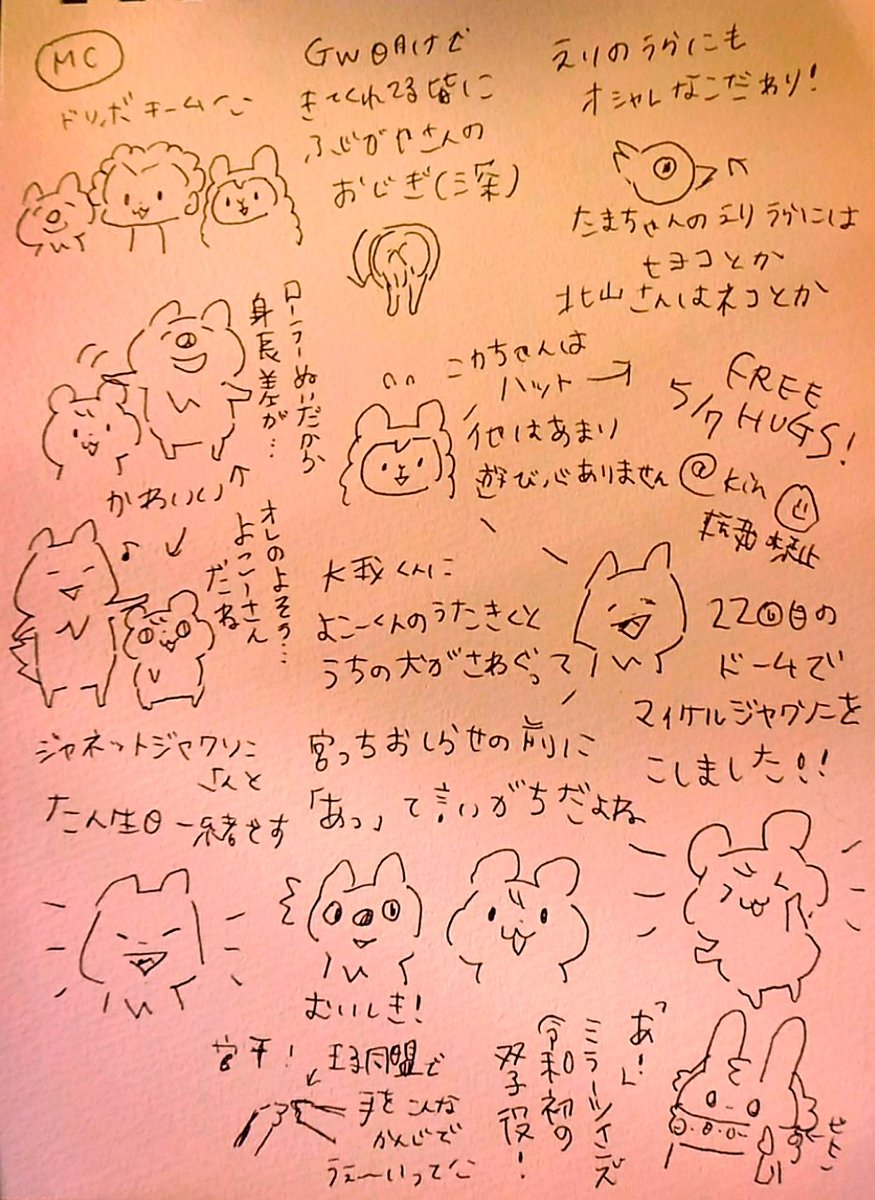 MC
ドリボチームで
GW明けで
きてくれてる皆に
ふじがやさんの
おじぎ(深)
えりのうらにも
オシャレなこだわり!
たまちゃんのえりうらには
ヒヨコとか
北山さんはネコとか
ローラーぬいだから
身長差が…
かわいい
ニカちゃんは
ハット
他はあまり
遊び心ありません
FREE
HUGS!
5/7
@kin
禁止
オレのよそう…
よこーさん
だね
大我くんに
よこーくんのうたきくと
うちの犬がさわぐって
22回目の
ドームで
マイケルジャクソンを
こしました!!
ジャネットジャクソン
さんと
たん生日一緒です
宮っちおしらせの前に
「あっ」て言いがちだよね
むいしき!
「あっ!」
ミラーツインズ
令和初の
双子役!
宮千!
同盟で
手をこんな
かんじで
うぇーいってで